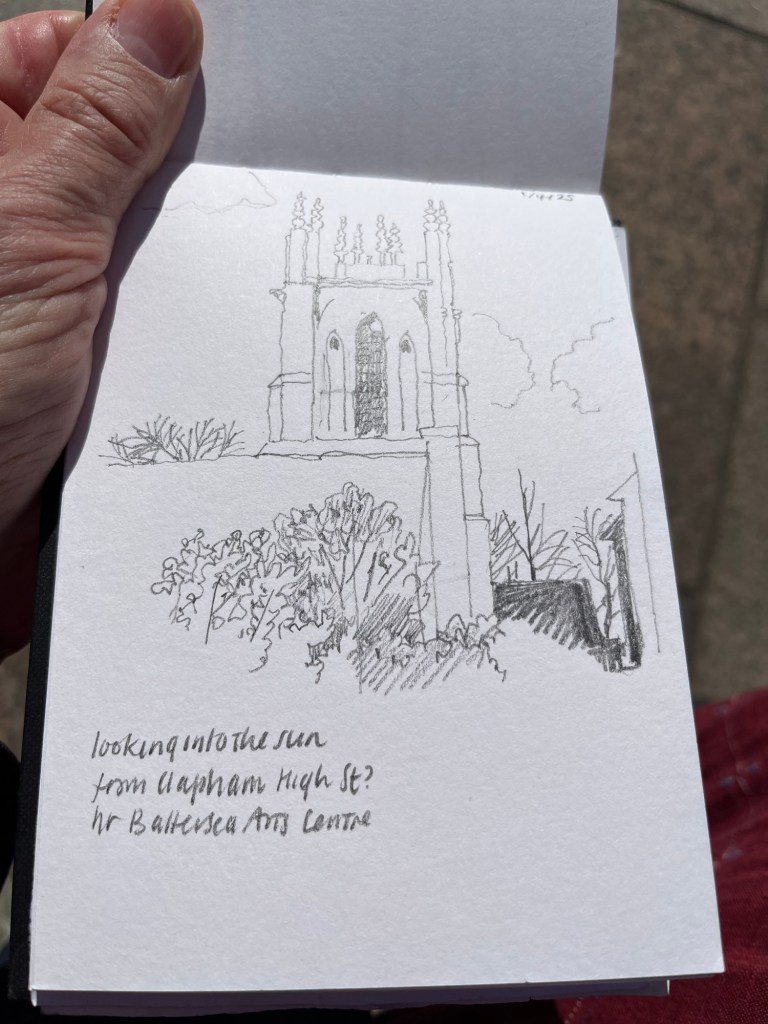 1/4/25
looking into the sun
from Clapham High St?
nr Battersea Arts Centre